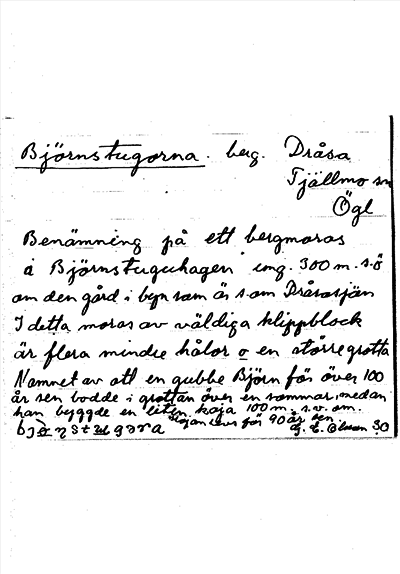 Björnstugorna. berg. Dråsa
Tjällmo sn
Ögl
Benämning på ett bergmoras
å Björnstuguhagen ung. 300 m. s.ö
om den gård i byn som äs s om Dråsasjön
I detta moras av väldiga klippblock
är flera mindre hålor o en större grotta
Namnet av att en gubbe Björn för över 100
år sen bodde i grottan över en sommar, medan
han byggde en liten koja 100 m. s.v. om.
Kojan revs för 90 år sen
G. E. Olsson 30